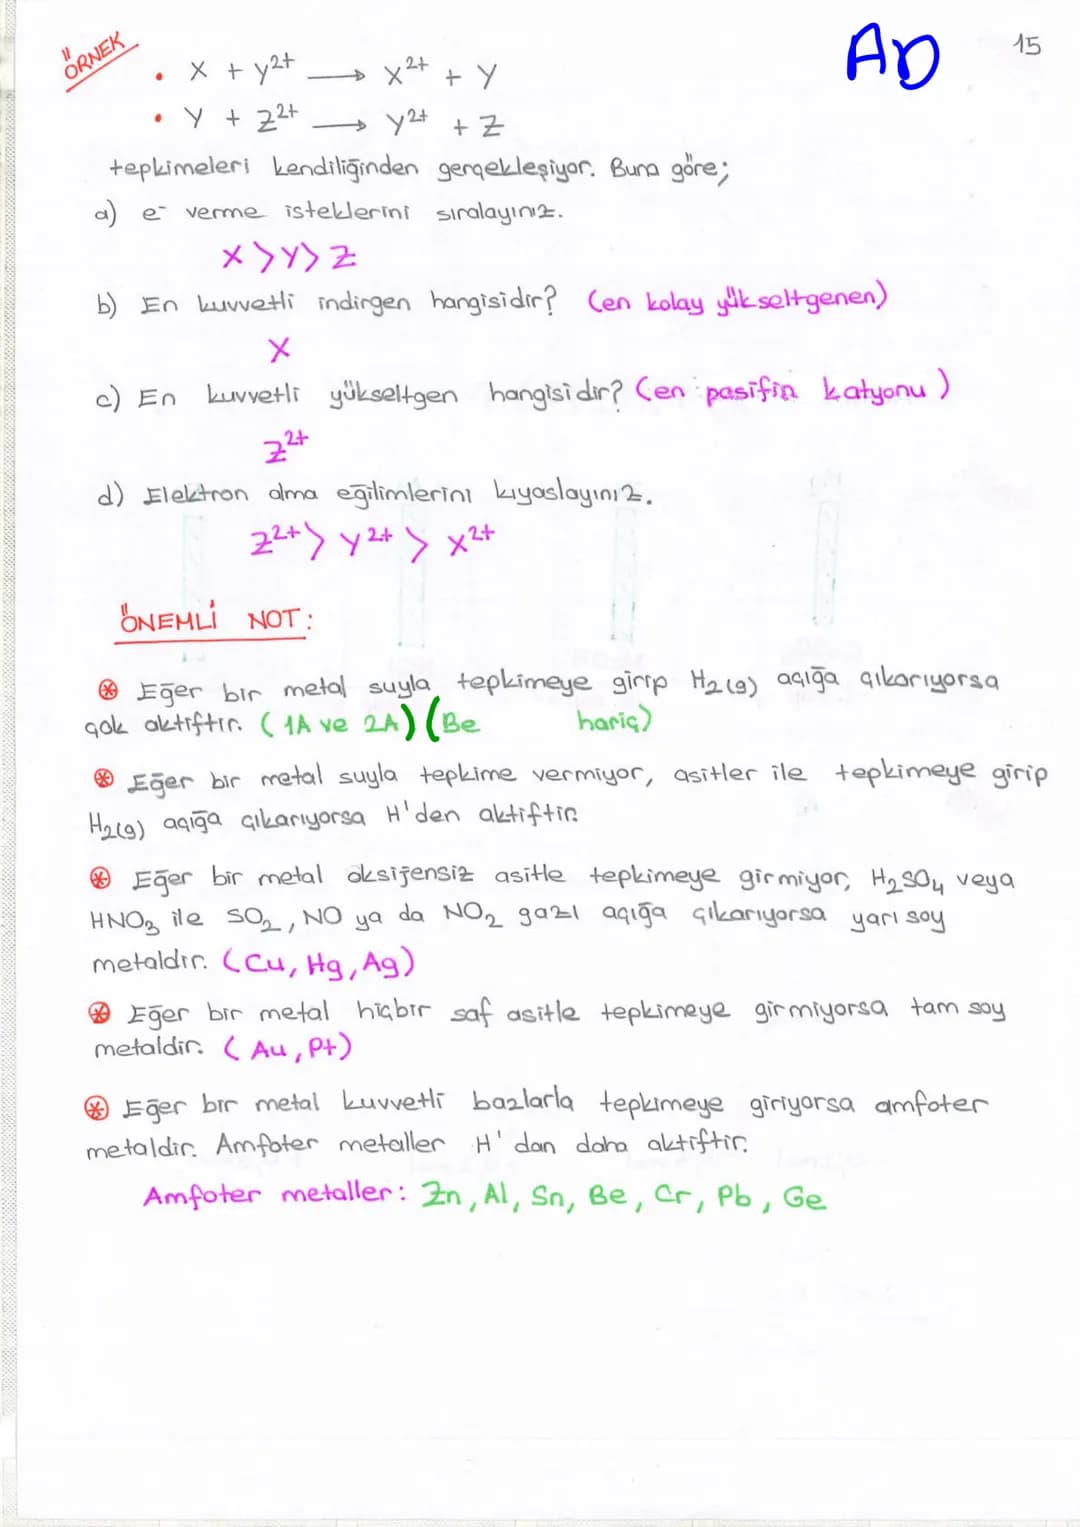 ÖRNEK
AD
15
• X + Y²⁺ → X²⁺ + Y
• Y + Z²⁺ → Y²⁺ + Z
tepkimeleri kendiliğinden gerçekleşiyor. Buna göre;
a) e⁻ verme isteklerini sıralayınız.
X > Y > Z
b) En kuvvetli indirgen hangisidir? (en kolay yükseltgenen)
X
c) En kuvvetli yükseltgen hangisidir? (en pasifin katyonu)
Z²⁺
d) Elektron alma eğilimlerini kıyaslayınız.
Z²⁺ > Y²⁺ > X²⁺
ÖNEMLİ NOT:
⊛ Eğer bir metal suyla tepkimeye girip H₂(g) açığa çıkarıyorsa
çok aktiftir. (1A ve 2A) (Be hariç)
⊛ Eğer bir metal suyla tepkime vermiyor, asitler ile tepkimeye girip
H₂(g) açığa çıkarıyorsa H'den aktiftir.
⊛ Eğer bir metal oksijensiz asitle tepkimeye girmiyor, H₂SO₄ veya
HNO₃ ile SO₂, NO ya da NO₂ gazı açığa çıkarıyorsa yarı soy
metaldir. (Cu, Hg, Ag)
⊛ Eğer bir metal hiçbir saf asitle tepkimeye girmiyorsa tam soy
metaldir. (Au, Pt)
⊛ Eğer bir metal kuvvetli bazlarla tepkimeye giriyorsa amfoter
metaldir. Amfoter metaller H'dan daha aktiftir.
Amfoter metaller: Zn, Al, Sn, Be, Cr, Pb, Ge